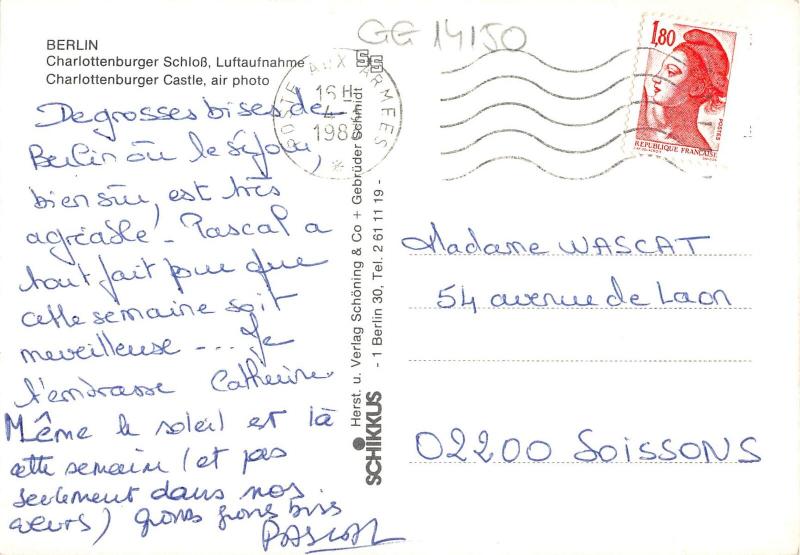 GG 14150
BERLIN
Charlottenburger Schloß, Luftaufnahme
Charlottenburger Castle, air photo
POSTE AUX ARMEES
16 H
4
198
1,80
POSTES
REPUBLIQUE FRANÇAISE
De grosses bises de
Berlin où le séjour,
bien sûr, est très
agréable. Pascal a
tout fait pour que
cette semaine soit
merveilleuse --- Je
t'embrasse Catherine.
Même le soleil est là
cette semaine (et pas
seulement dans nos
cœurs) gros gros bises
PASCAL
SCHIKKUS
Herst. u. Verlag Schöning & Co + Gebrüder Schmidt
- 1 Berlin 30, Tel. 2 61 11 19 -
Madame WASCAT
54 avenue de Laon
02200 SOISSONS